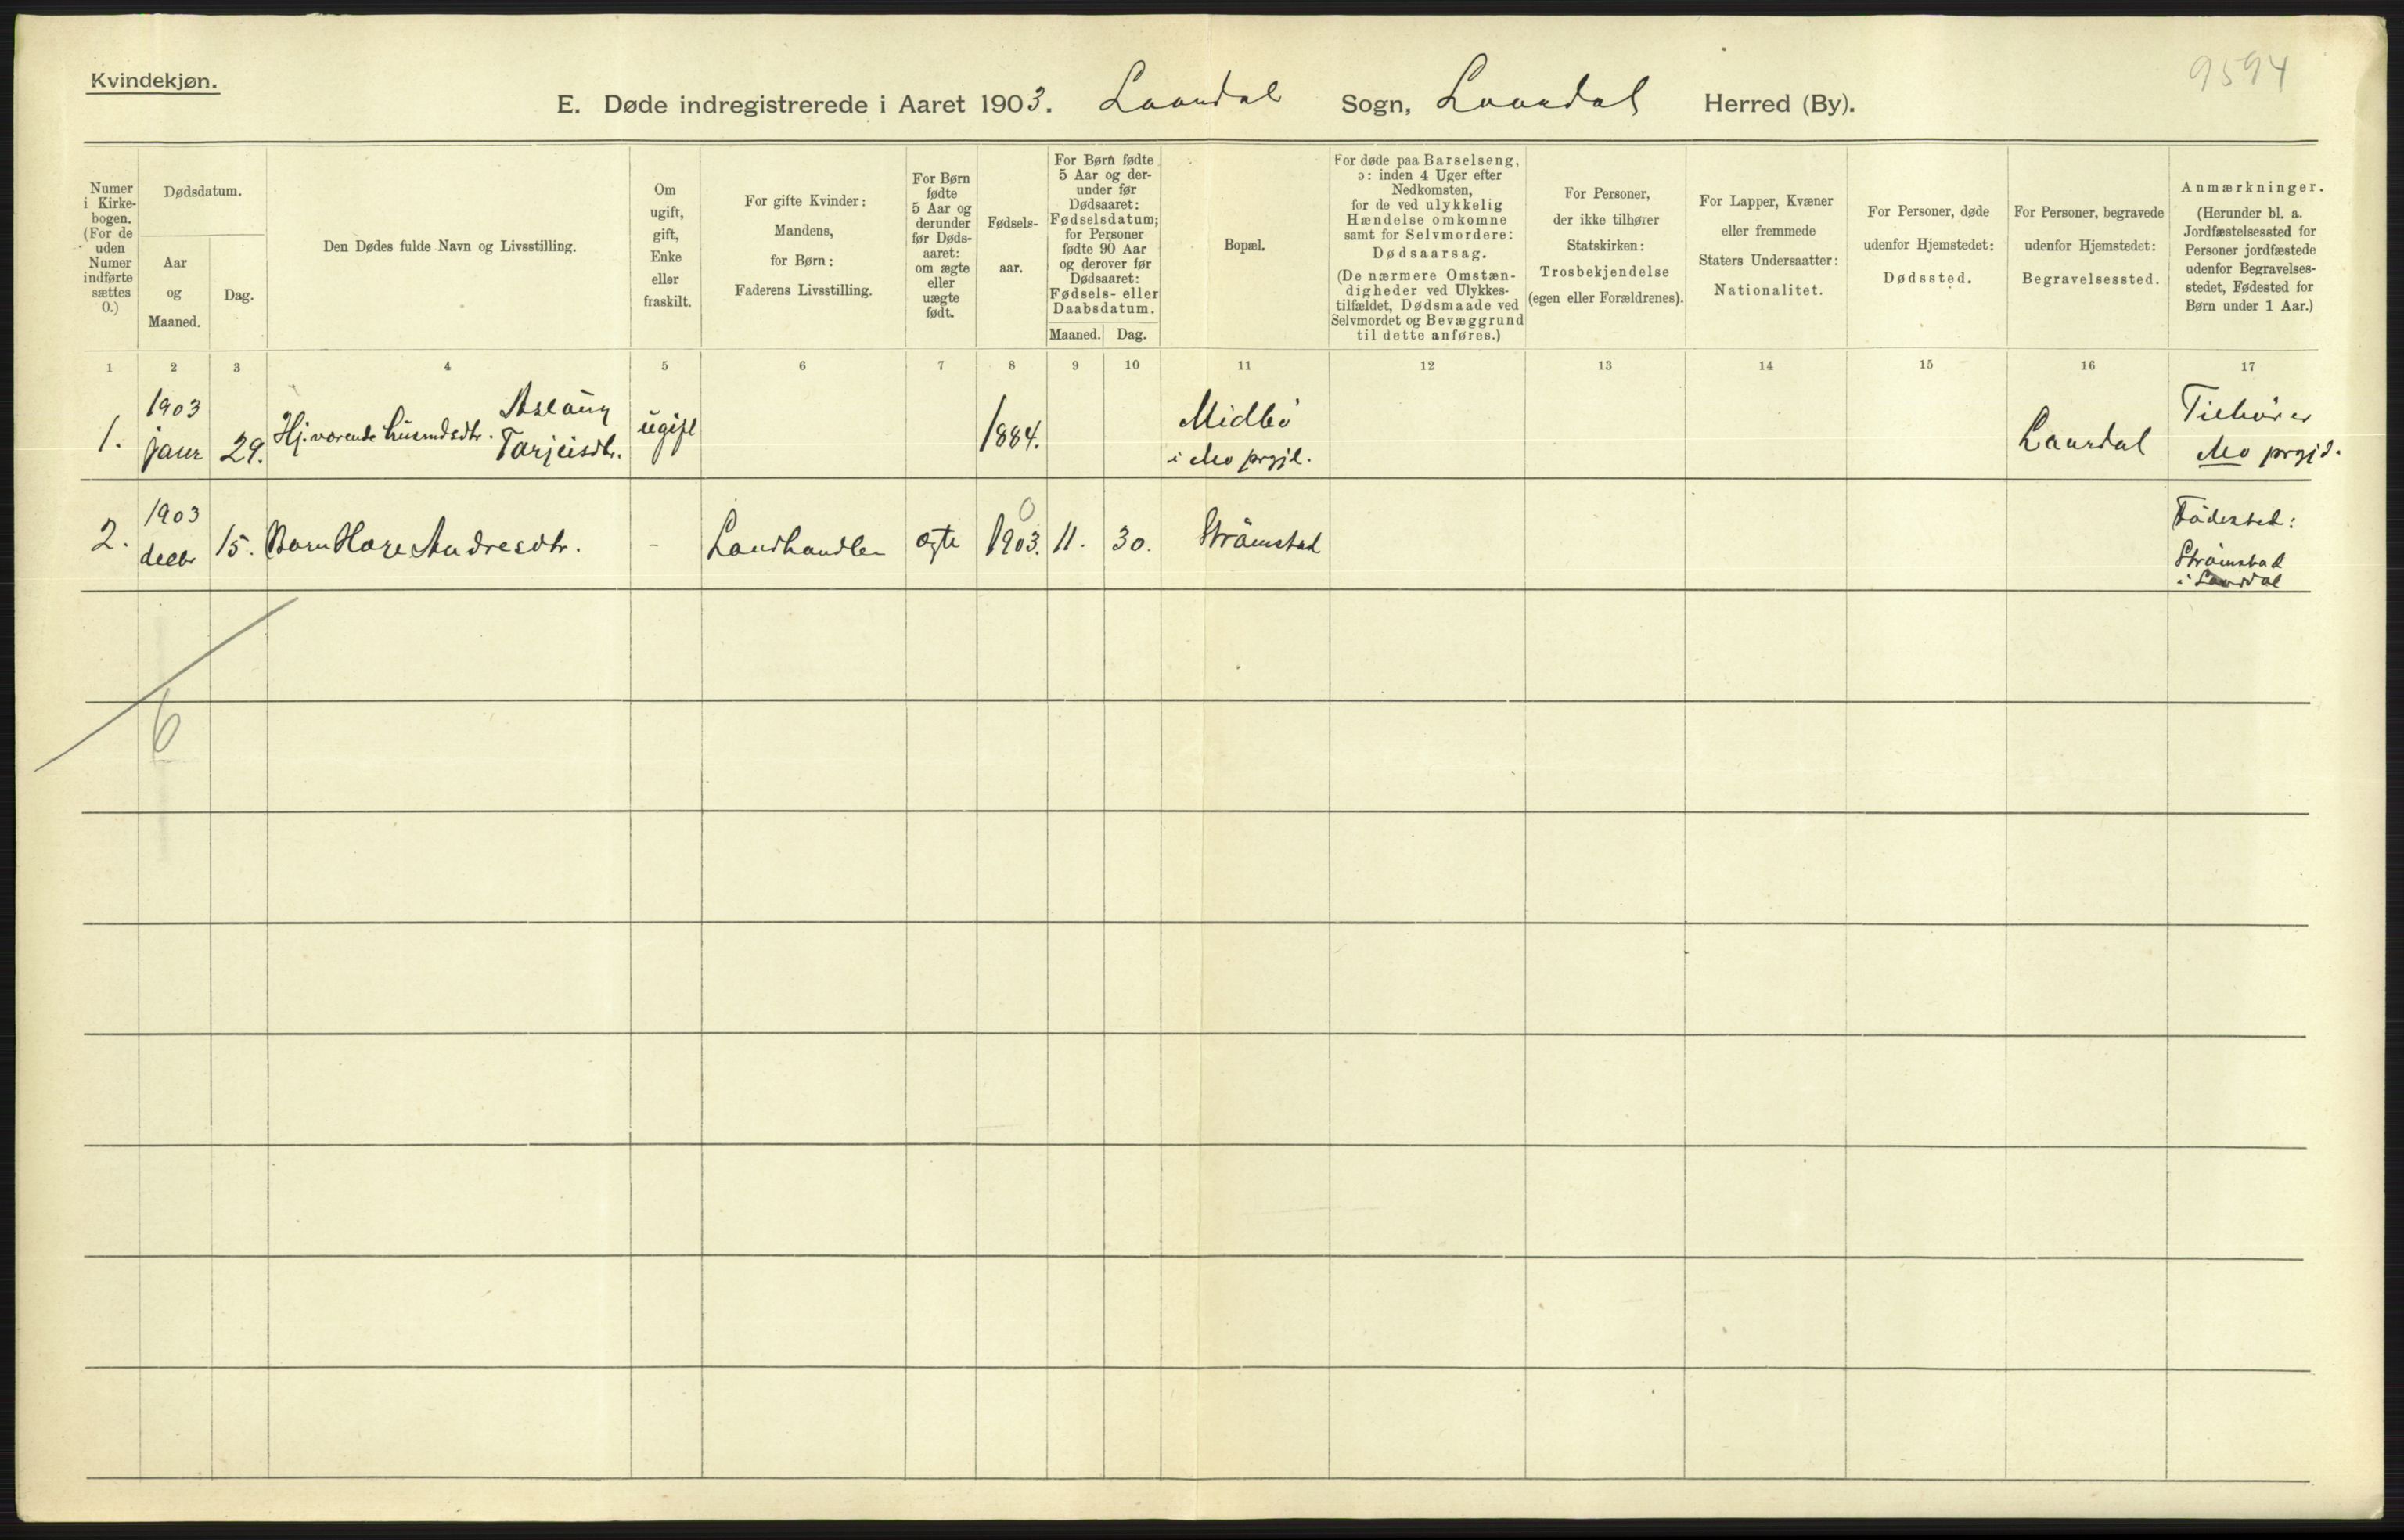 Kvindekjøn.
9594
E. Døde indregistrerede i Aaret 1903. Laurdal Sogn, Laurdal Herred (By).
Numer
i Kirke-
bogen.
(For de
uden
Numer
indførte
sættes
0.)
Dødsdatum.
Aar
og
Maaned.
Dag.
Den Dødes fulde Navn og Livsstilling.
Om
ugift,
gift,
Enke
eller
fraskilt.
For gifte Kvinder:
Mandens,
for Børn:
Faderens Livsstilling.
For Børn
fødte
5 Aar og
derunder
før Døds-
aaret:
om ægte
eller
uægte
født.
Fødsels-
aar.
For Børn fødte
5 Aar og der-
under før
Dødsaaret:
Fødselsdatum;
for Personer
fødte 90 Aar
og derover før
Dødsaaret:
Fødsels- eller
Daabsdatum.
Maaned. Dag.
Bopæl.
For døde paa Barselseng,
ɔ: inden 4 Uger efter
Nedkomsten,
for de ved ulykkelig
Hændelse omkomne
samt for Selvmordere:
Dødsaarsag.
(De nærmere Omstæn-
digheder ved Ulykkes-
tilfældet, Dødsmaade ved
Selvmordet og Bevæggrund
til dette anføres.)
For Personer,
der ikke tilhører
Statskirken:
Trosbekjendelse
(egen eller Forældrenes).
For Lapper, Kvæner
eller fremmede
Staters Undersaatter:
Nationalitet.
For Personer, døde
udenfor Hjemstedet:
Dødssted.
For Personer, begravede
udenfor Hjemstedet:
Begravelsessted.
Anmærkninger.
(Herunder bl. a.
Jordfæstelsessted for
Personer jordfæstede
udenfor Begravelses-
stedet, Fødested for
Børn under 1 Aar.)
1 2 3 4 5 6 7 8 9 10 11 12 13 14 15 16 17
1.
1903
janr
29.
Hj.værende husmdsdtr.
Aslaug
Tarjeisdtr.
ugift
1884.
Midbö
i Mo prgjl.
Laurdal
Tilhörer
Mo prgjd.
2.
1903
decbr
15.
Barn Hæge Andresdtr.
-
Landhandler
ægte
0
1903.
11.
30.
Strömstad
Födested:
Strömstad
i Laurdal
6